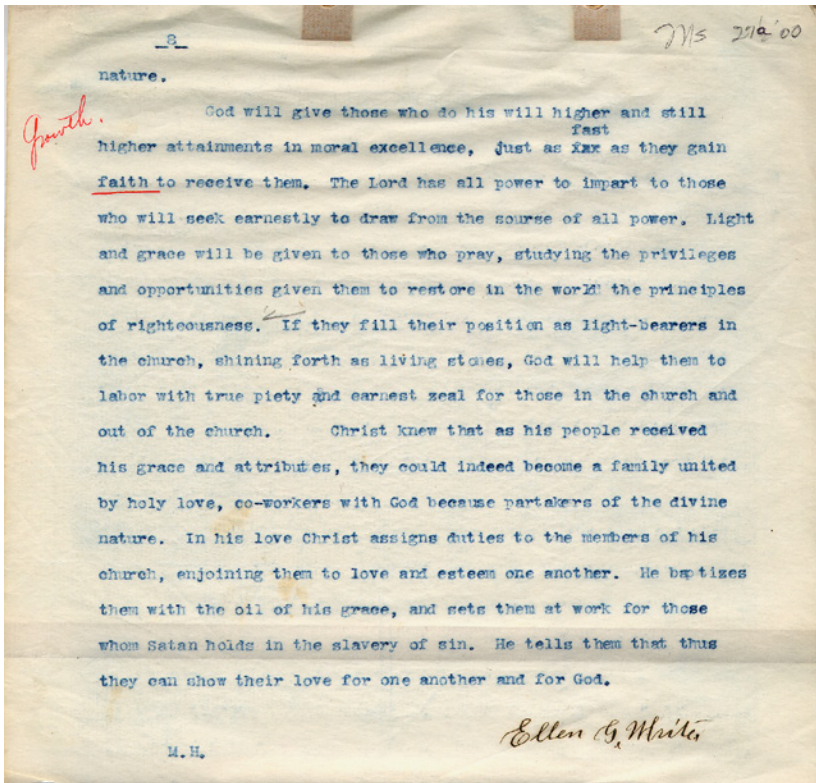 8
Ms 27a '00
nature.
Growth.
God will give those who do his will higher and still
fast
higher attainments in moral excellence, just as fax as they gain
faith to receive them. The Lord has all power to impart to those
who will seek earnestly to draw from the sourse of all power. Light
and grace will be given to those who pray, studying the privileges
and opportunities given them to restore in the world the principles
of righteousness. If they fill their position as light-bearers in
the church, shining forth as living stones, God will help them to
labor with true piety and earnest zeal for those in the church and
out of the church. Christ knew that as his people received
his grace and attributes, they could indeed become a family united
by holy love, co-workers with God because partakers of the divine
nature. In his love Christ assigns duties to the members of his
church, enjoining them to love and esteem one another. He baptizes
them with the oil of his grace, and sets them at work for those
whom Satan holds in the slavery of sin. He tells them that thus
they can show their love for one another and for God.
Ellen G. White
M.H.